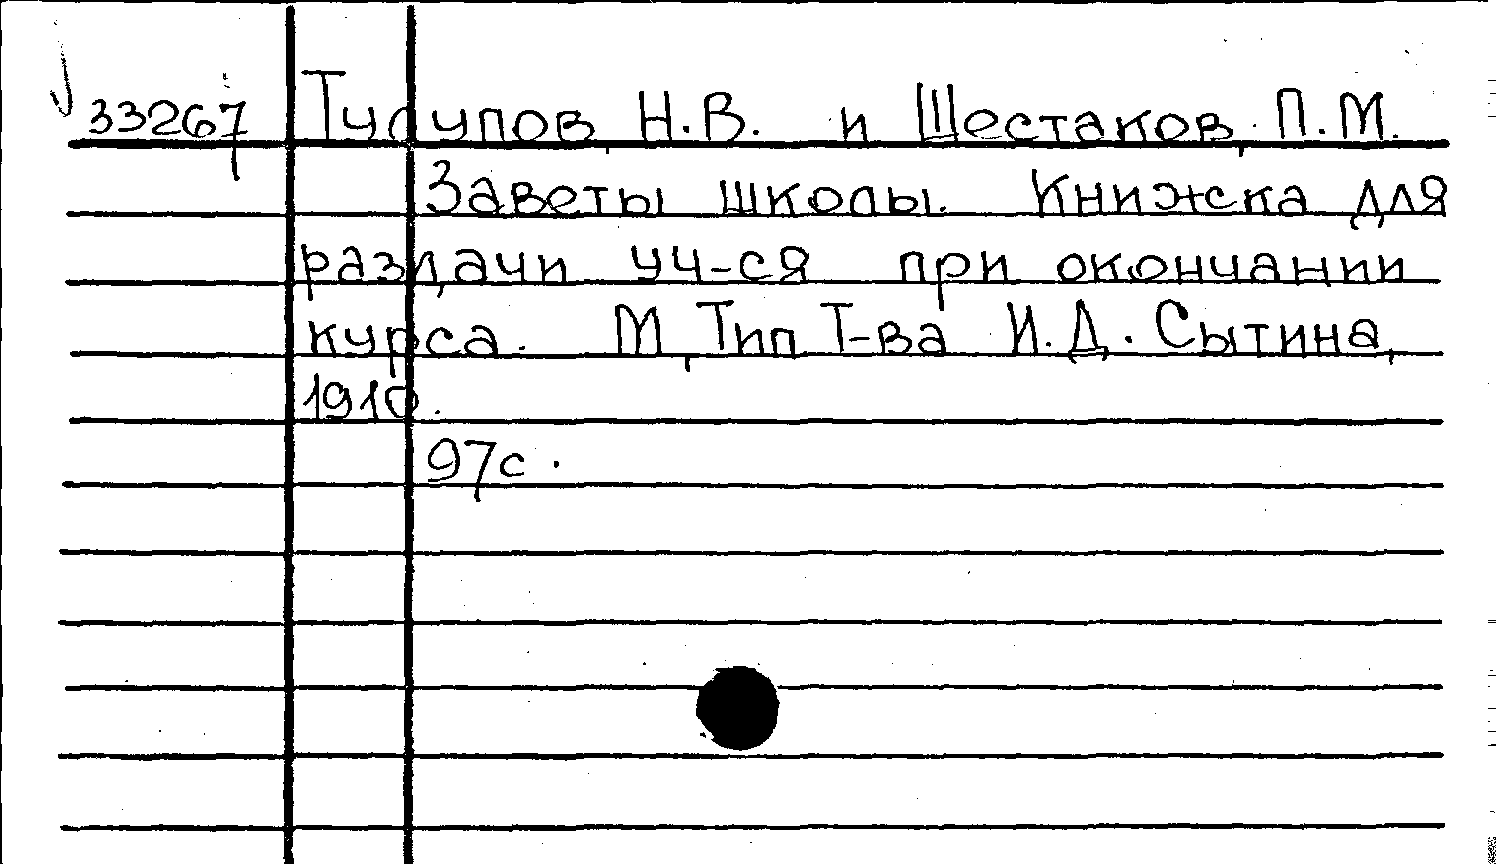 33267 Тулупов, Н.В. и Шестаков, П.М.
Заветы школы. Книжка для
раздачи уч-ся при окончании
курса. М, Тип Т-ва И.Д. Сытина,
1910.
97с.